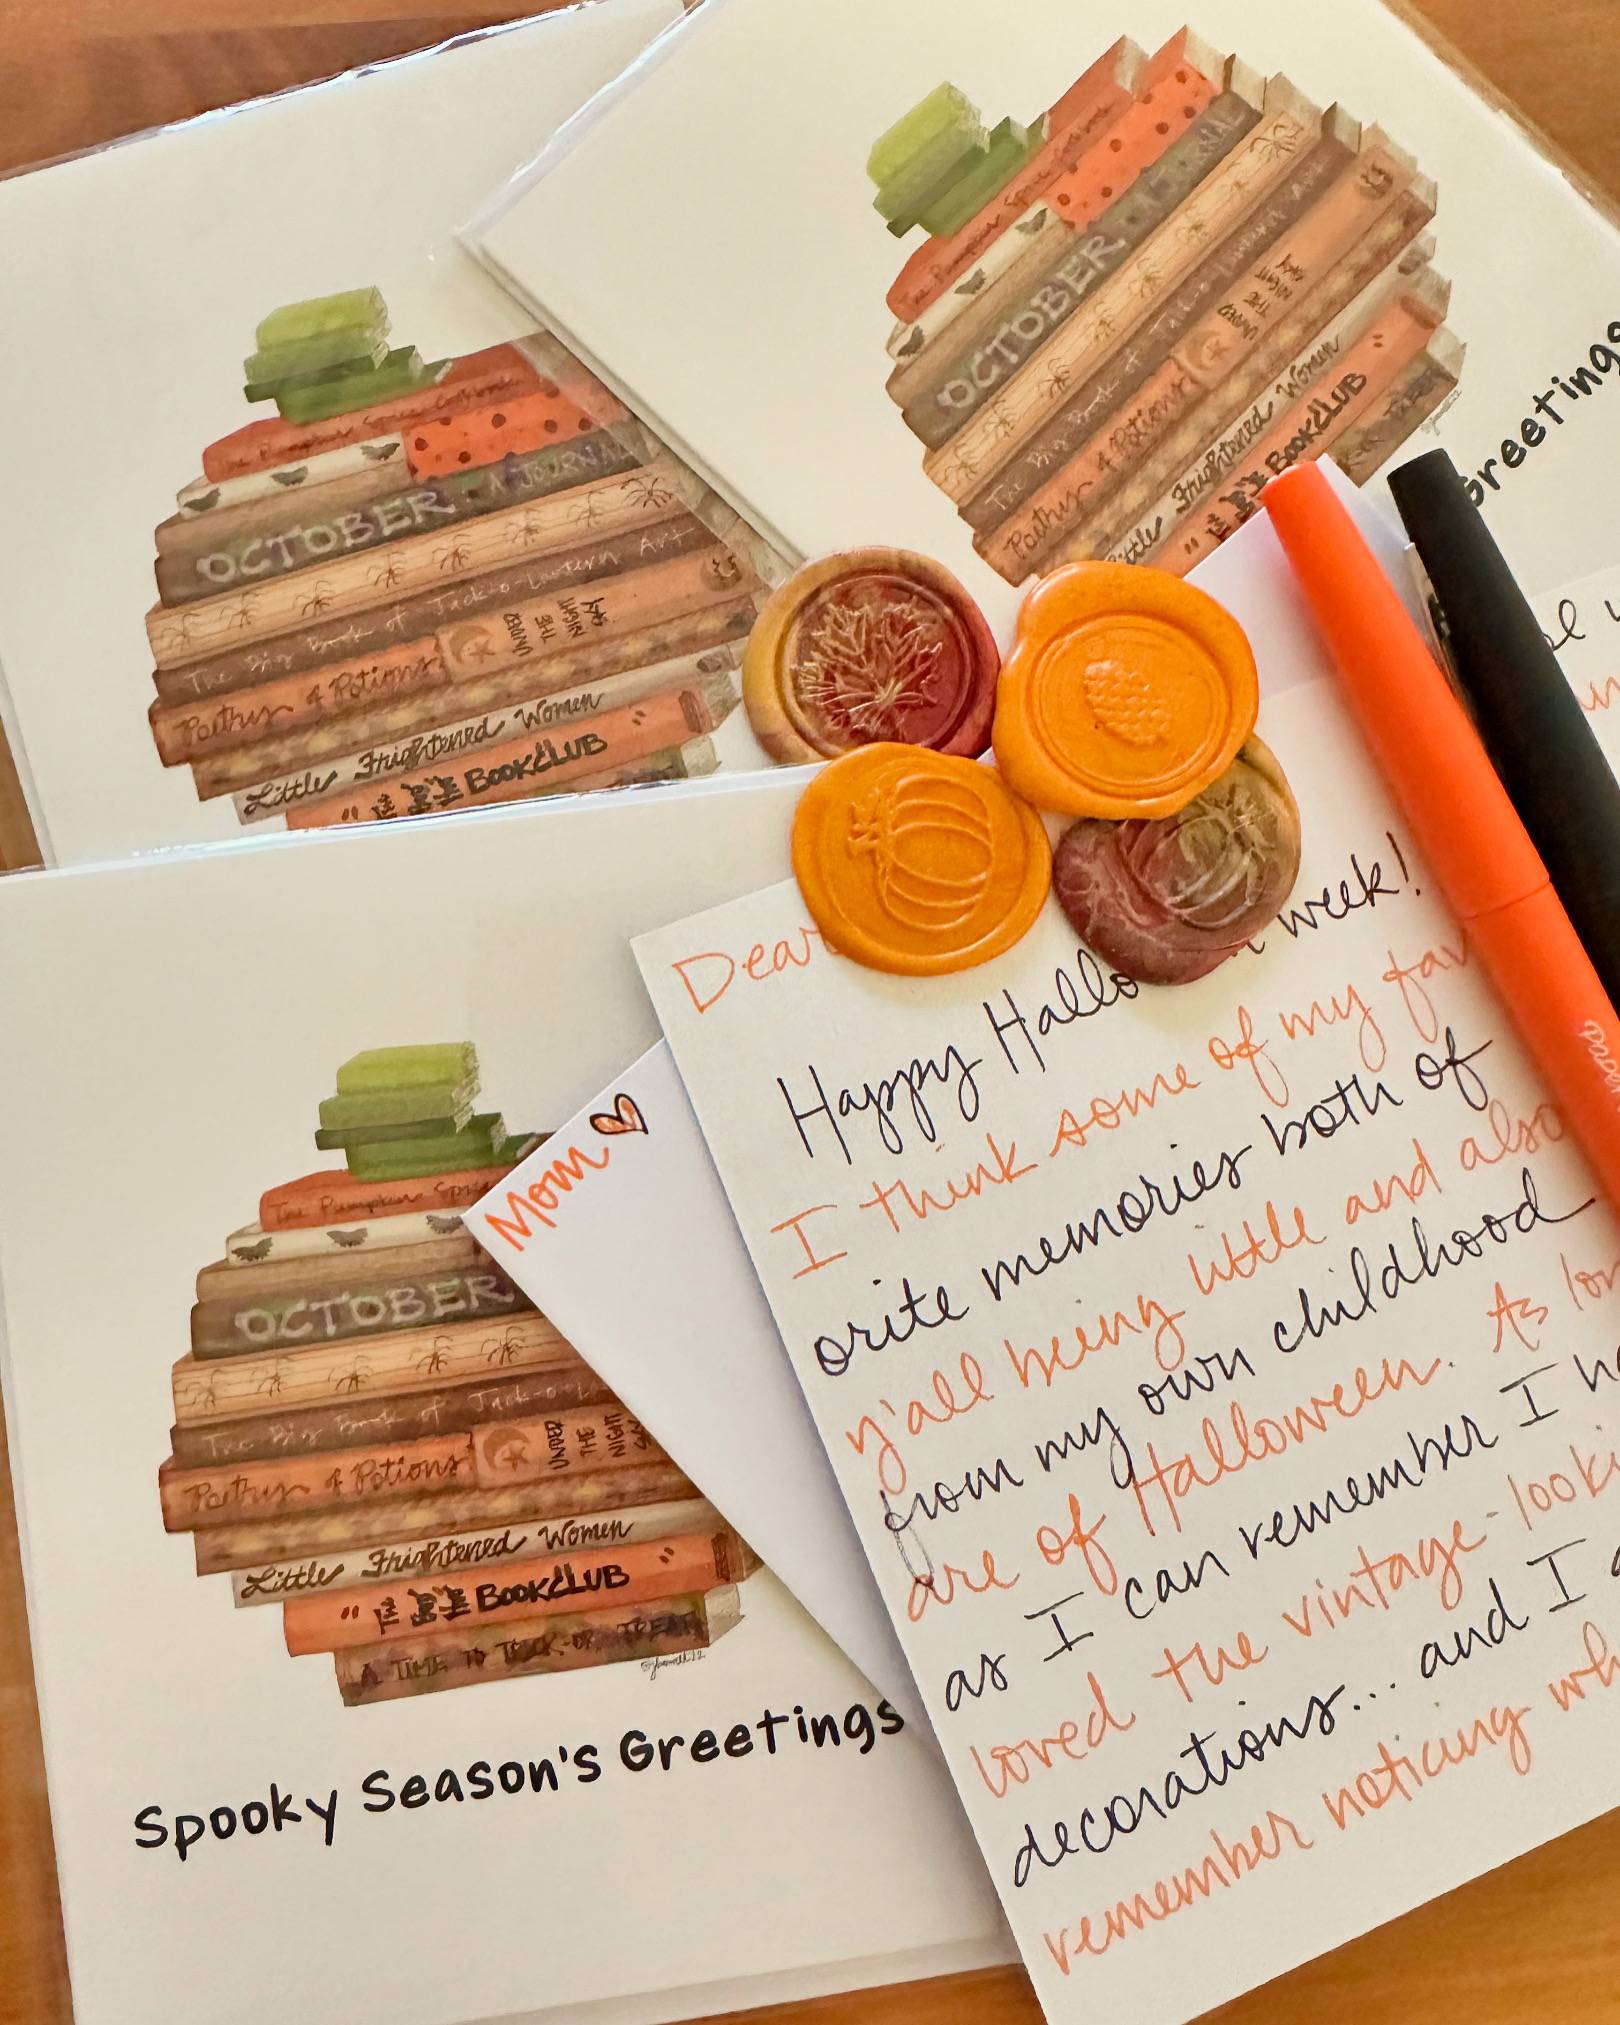 The Pumpkin Spice Cookbook
OCTOBER A JOURNAL
The Big Book of Jack-o-Lantern Art
& Potions
UNDER
THE
NIGHT
SKY
Little Frightened Women
" BOOKCLUB
The Pumpkin Spice Cookbook
OCTOBER · A JOURNAL
The Big Book of Jack-o-Lantern Art
& Potions
UNDER
THE
NIGHT
SKY
Little Frightened Women
" BOOKCLUB "
Greetings
The Pumpkin Spice
OCTOBER
The Big Book of Jack-o-La
& Potions
UNDER
THE
NIGHT
SKY
Little Frightened Women
" BOOKCLUB "
A TIME TO TRICK-OR-TREAT
Spooky Season's Greetings
Mom
Dear
Happy Hallo n week!
I think some of my fav
orite memories both of
y'all being little and also
from my own childhood
are of Halloween. As lon
as I can remember I ha
loved the vintage-looki
decorations... and I a
remember noticing wh
Pape